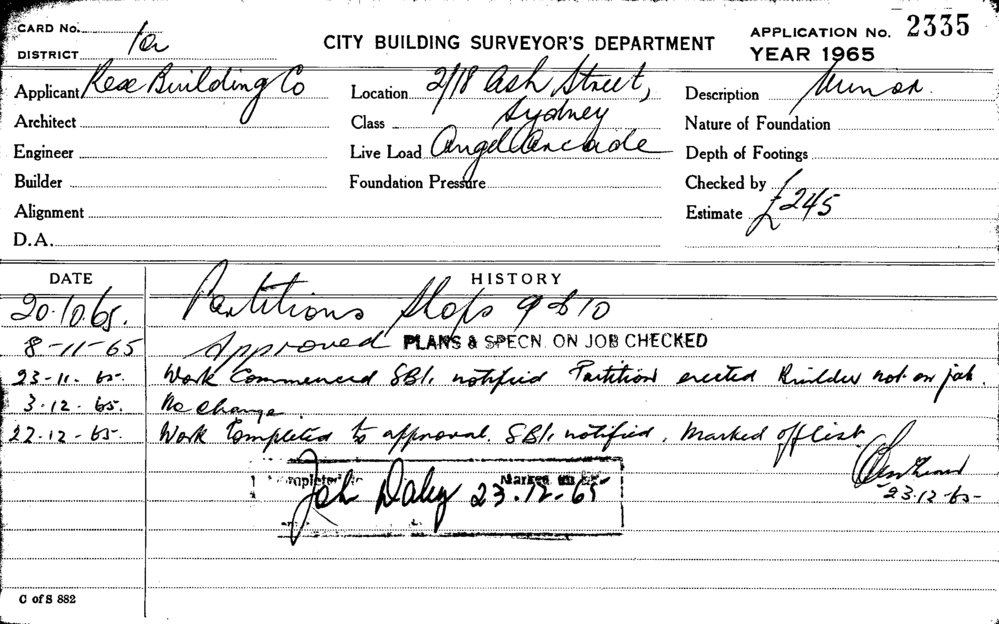 CARD No.
DISTRICT 1a
CITY BUILDING SURVEYOR'S DEPARTMENT
APPLICATION No. 2335
YEAR 1965
Applicant Rex Building Co
Location 2/18 Ash Street,
Sydney
Description Minor.
Architect
Class
Nature of Foundation
Engineer
Live Load Angel Arcade
Depth of Footings
Builder
Foundation Pressure
Checked by
Alignment
Estimate £245
D.A.
DATE HISTORY
20.10.65. Partitions Shops 9 & 10
8-11-65 Approved PLANS & SPECN. ON JOB CHECKED
23-11-65. Work Commenced SBI. notified Partition erected Builder not on job.
3.12.65. No change.
22.12-65. Work Completed to approval. SBI. notified. Marked off list
23.12-65-
Completed Marked
Joh Daley 23.12-65
C of S 882